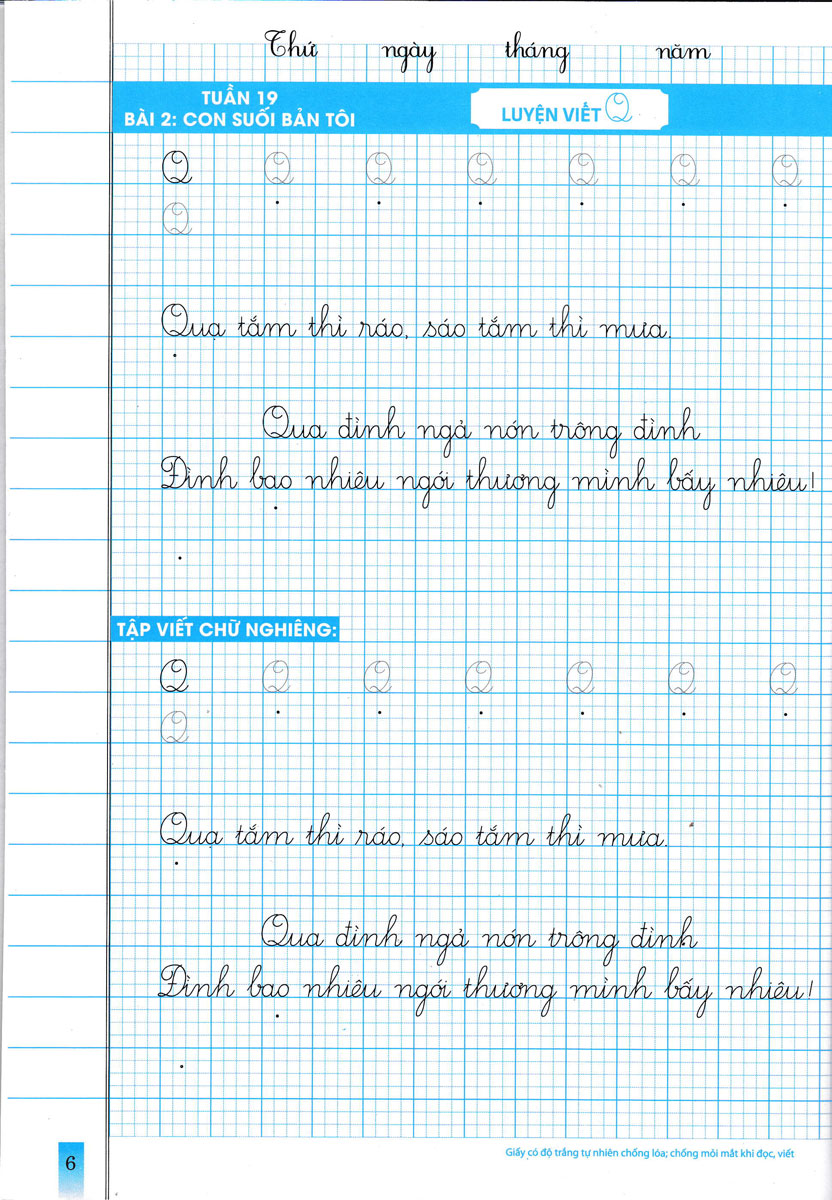 Thứ ngày tháng năm
TUẦN 19
BÀI 2: CON SUỐI BẢN TÔI
LUYỆN VIẾT Q
Q Q Q Q Q Q Q
Q
Quạ tắm thì ráo, sáo tắm thì mưa.
Qua đình ngả nón trông đình
Đình bao nhiêu ngói thương mình bấy nhiêu!
TẬP VIẾT CHỮ NGHIÊNG:
Q Q Q Q Q Q Q
Q
Quạ tắm thì ráo, sáo tắm thì mưa.
Qua đình ngả nón trông đình
Đình bao nhiêu ngói thương mình bấy nhiêu!
Giấy có độ trắng tự nhiên chống lóa; chống mỏi mắt khi đọc, viết
6